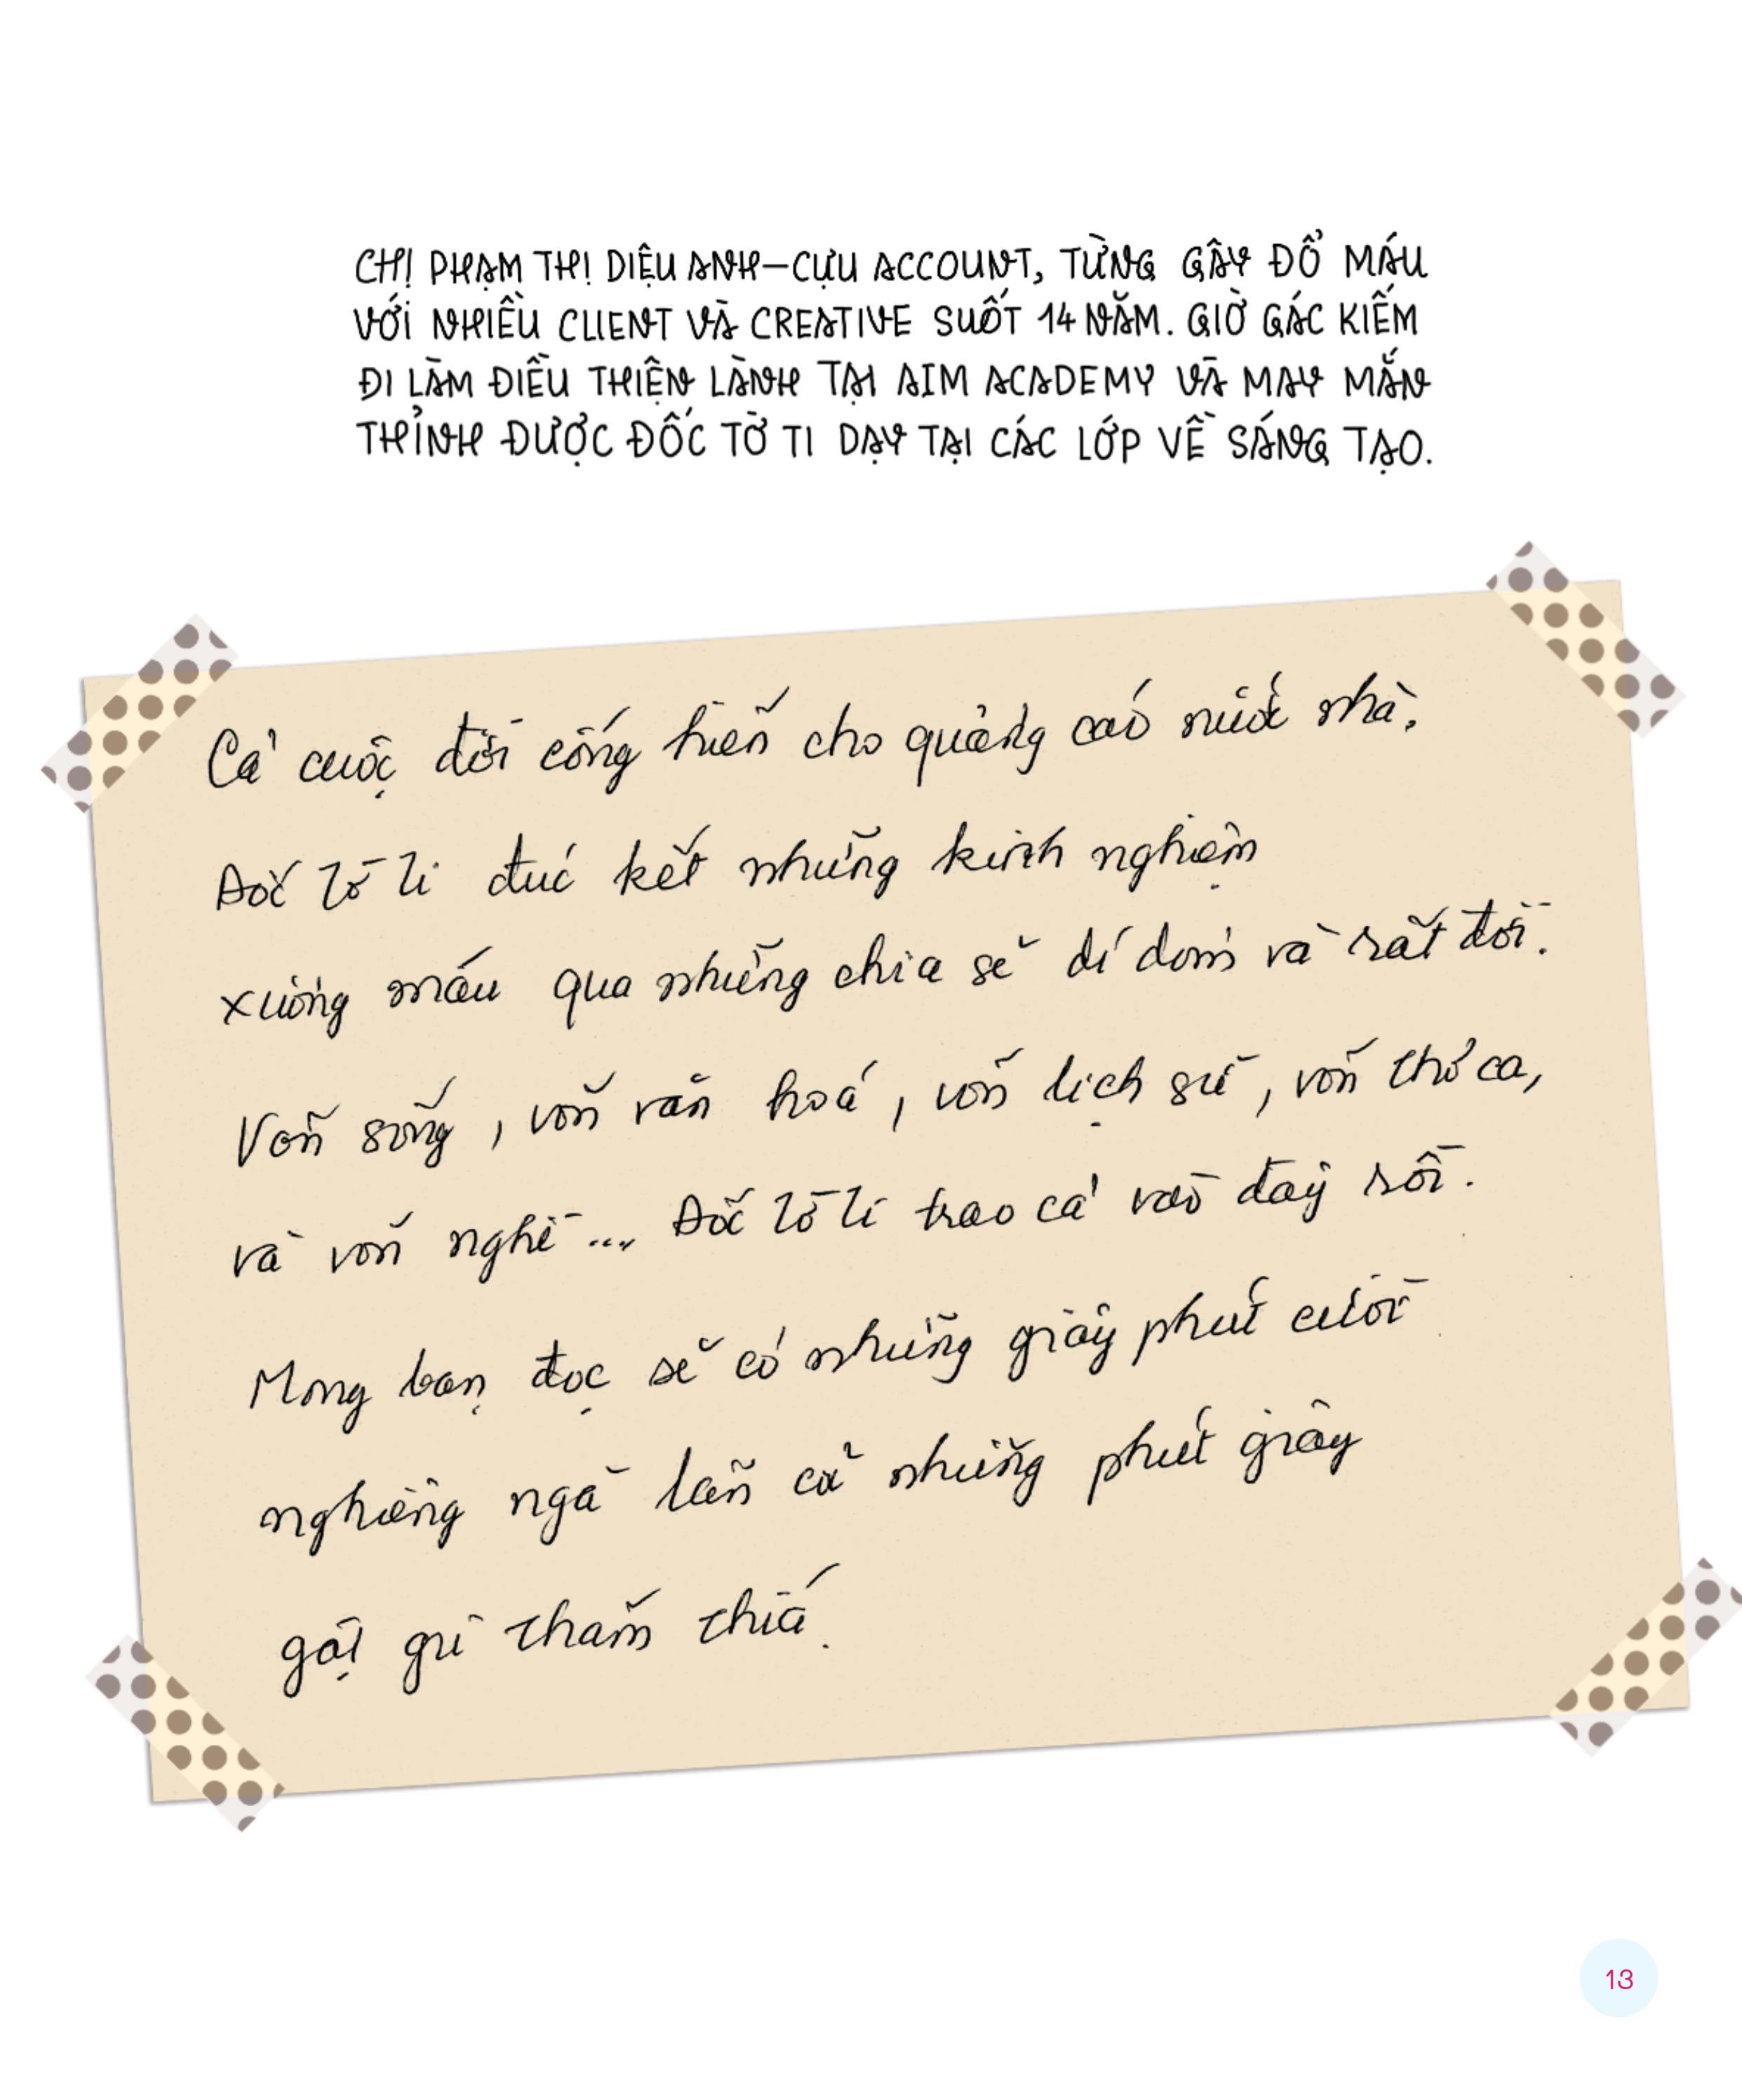 CHỊ PHẠM THỊ DIỆU ANH–CỰU ACCOUNT, TỪNG GÂY ĐỔ MÁU
VỚI NHIỀU CLIENT VÀ CREATIVE SUỐT 14 NĂM. GIỜ GÁC KIẾM
ĐI LÀM ĐIỀU THIỆN LÀNH TẠI AIM ACADEMY VÀ MAY MẮN
THỈNH ĐƯỢC ĐỐC TỜ TI DẠY TẠI CÁC LỚP VỀ SÁNG TẠO.
Cả cuộc đời cống hiến cho quảng cáo nước nhà,
Đốc Tờ Ti đúc kết những kinh nghiệm
xương máu qua những chia sẻ dí dỏm và rất đời.
Vốn sống, vốn văn hoá, vốn lịch sử, vốn thơ ca,
và vốn nghề... Đốc Tờ Ti trao cả vào đây rồi.
Mong bạn đọc sẽ có những giây phút cười
nghiêng ngả lẫn cả những phút giây
gật gù thấm thía.
13